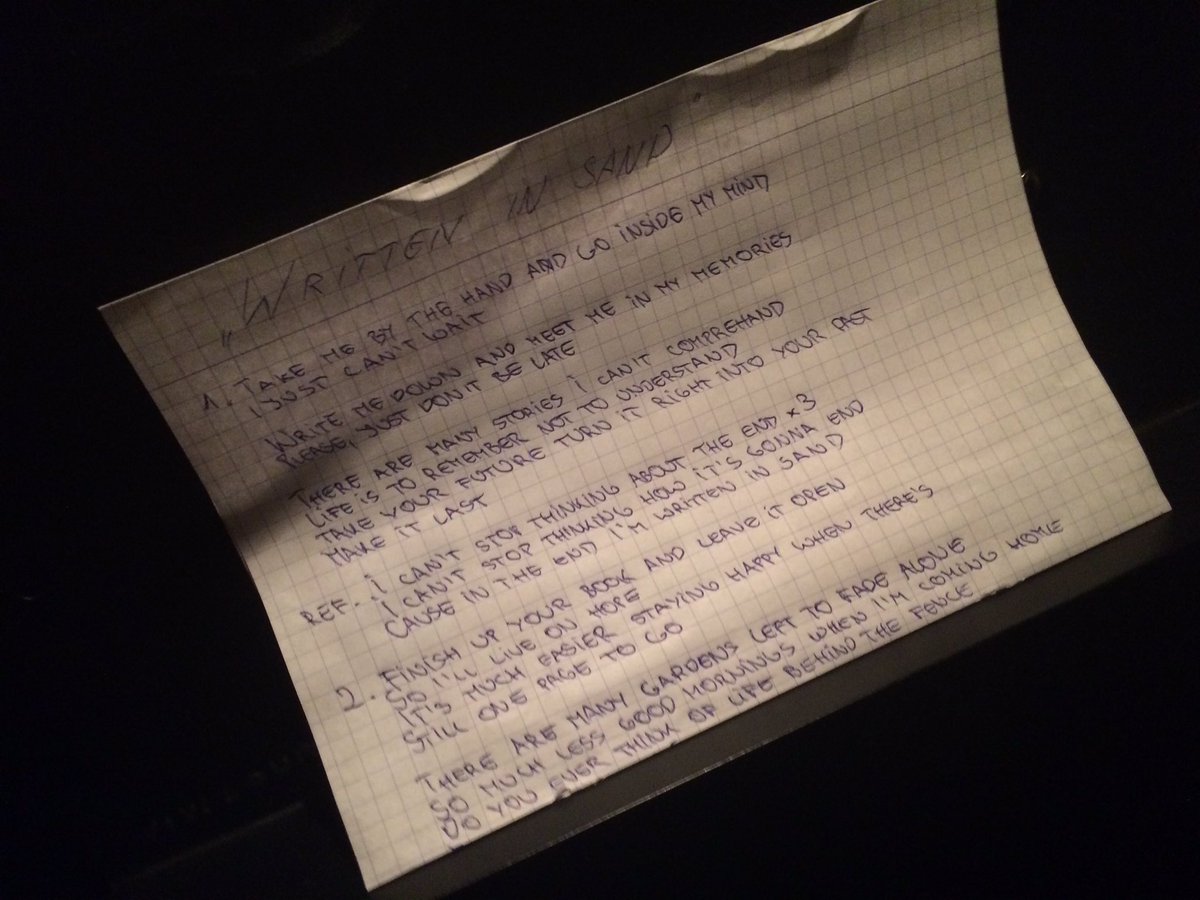 „WRITTEN IN SAND"
1. TAKE ME BY THE HAND AND GO INSIDE MY MIND
I JUST CAN'T WAIT
WRITE ME DOWN AND MEET ME IN MY MEMORIES
PLEASE, JUST DON'T BE LATE
THERE ARE MANY STORIES I CAN'T COMPREHAND
LIFE IS TO REMEMBER NOT TO UNDERSTAND
TAKE YOUR FUTURE TURN IT RIGHT INTO YOUR PAST
MAKE IT LAST
REF.. I CAN'T STOP THINKING ABOUT THE END x3
I CAN'T STOP THINKING HOW IT'S GONNA END
CAUSE IN THE END I'M WRITTEN IN SAND
2. FINISH UP YOUR BOOK AND LEAVE IT OPEN
SO I'LL LIVE ON HOPE
IT'S MUCH EASIER STAYING HAPPY WHEN THERE'S
STILL ONE PAGE TO GO
THERE ARE MANY GARDENS LEFT TO FADE ALONE
SO MUCH LESS GOOD MORNINGS WHEN I'M COMING HOME
DO YOU EVER THINK OF LIFE BEHIND THE FENCE